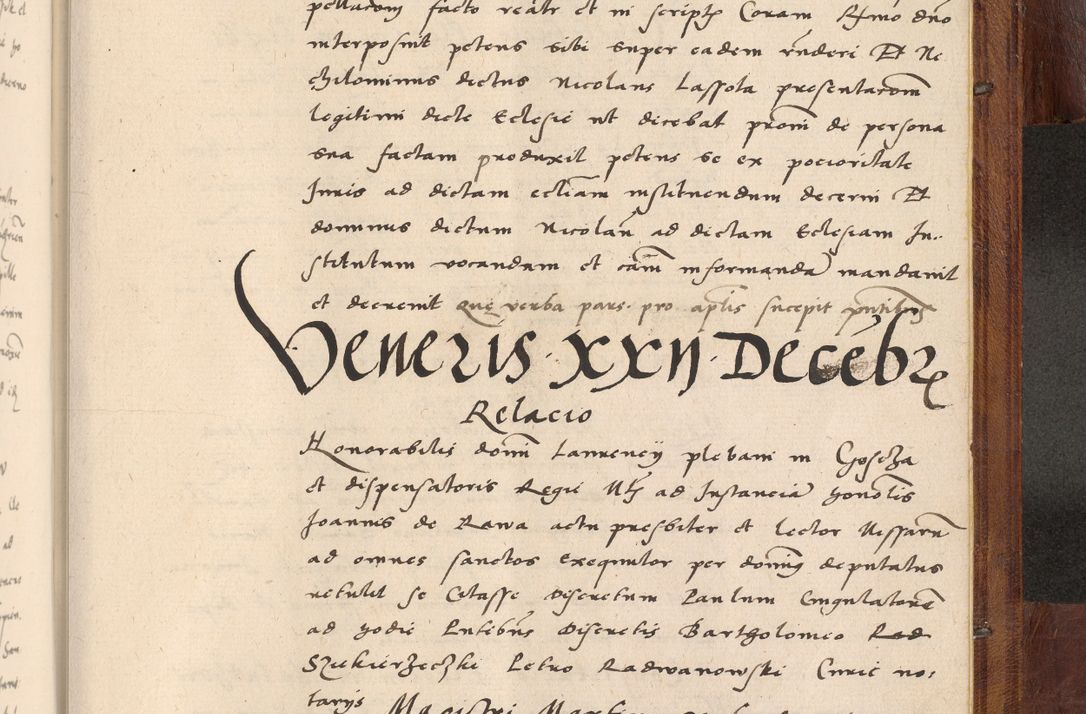 pellacom facto realr et in script Coram Rmo dno
interposuit petens sibi super eadem rnderi Et Ne
chilominus dictus Nicolaus Lassota presentacom
legitimi dicte Eclesie ut dicebat prom de persona
sua factam produxit petens se ex pocioritate
Juris ad dictam ecliam instituendum decerni Et
dominus dictum Nicolau ad dictam Eclesiam In-
stitutum vocandum et cam informanda mandavit
et decrevit que verba pars pro aplis suscepit pntibus
Veneris · XXII · Decebr
Relacio
Honorabilis domi Laurencij plebani in Goscza
et dispensatoris Regie Mtis ad Instancia honolis
Joannis de Rawa actu presbiter et lector Missaru
ad omnes sanctos Exequutor per dominu deputatus
retulit se Citasse Discretum Paulum Cingulatore
ad hodie Pntibus Discretis Bartholomeo Rad
Szukierzeczki Petro Radwanowski Curie no:
tarijs Magistri Martin